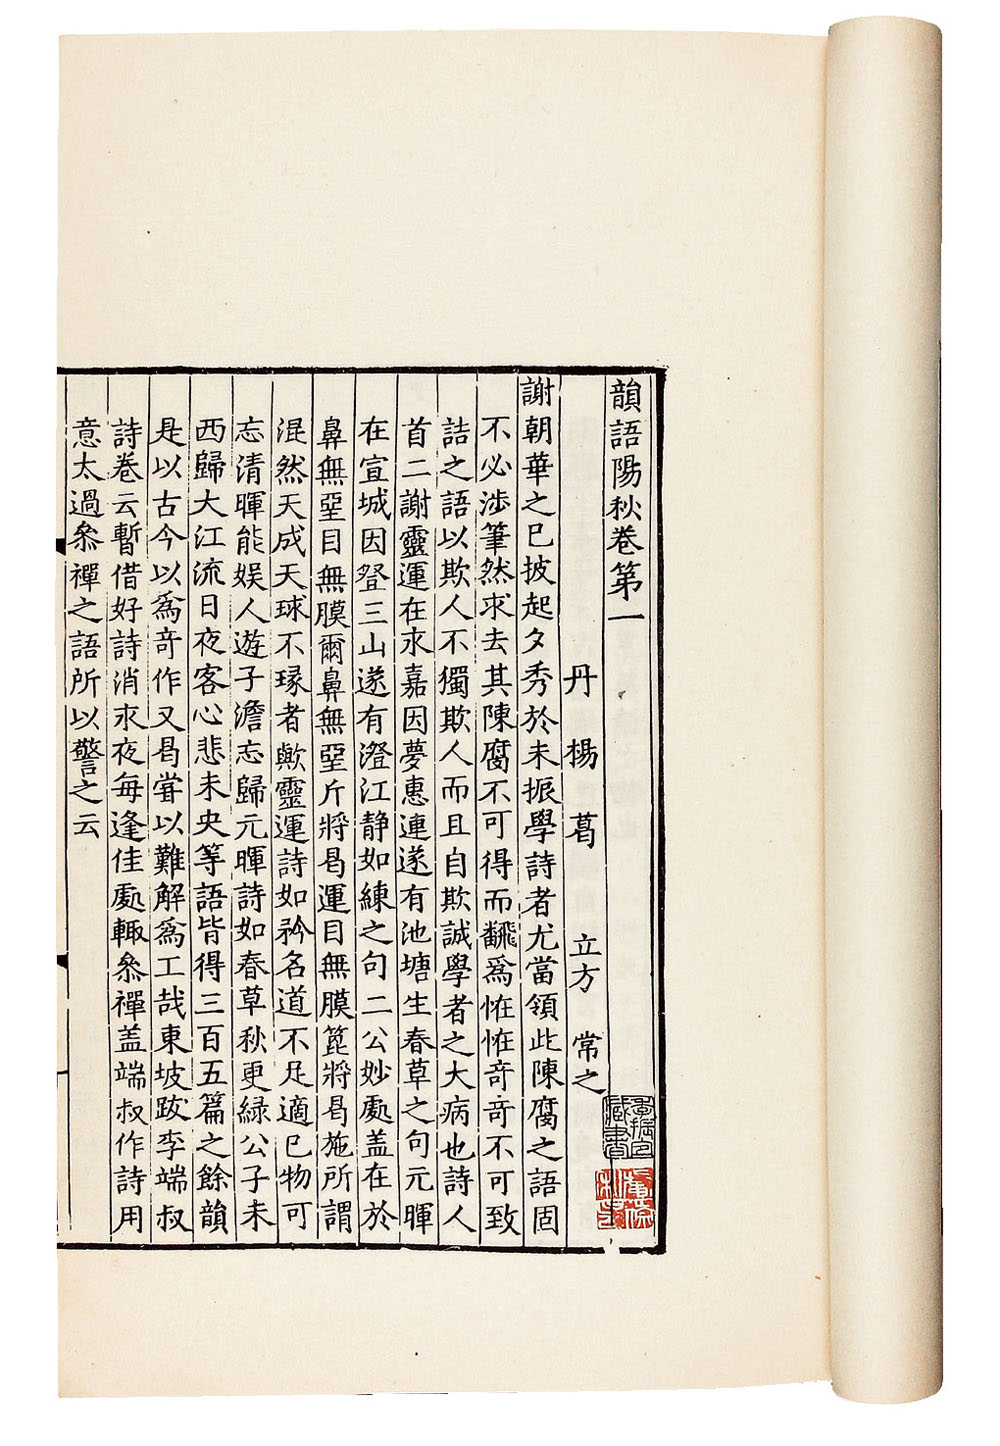 韻語陽秋卷第一
丹楊葛 立方 常之
謝朝華之已披起夕秀於未振學詩者尤當領此陳腐之語固
不必涉筆然求去其陳腐不可得而飜爲恠恠奇奇不可致
詰之語以欺人不獨欺人而且自欺誠學者之大病也詩人
首二謝靈運在永嘉因夢惠連遂有池塘生春草之句元暉
在宣城因登三山遂有澄江静如練之句二公妙處盖在於
鼻無堊目無膜爾鼻無堊斤將曷運目無膜箆將曷施所謂
混然天成天球不琢者歟靈運詩如矜名道不足適己物可
忘清暉能娱人遊子澹忘歸元暉詩如春草秋更緑公子未
西歸大江流日夜客心悲未央等語皆得三百五篇之餘韻
是以古今以爲奇作又曷甞以難解爲工哉東坡跋李端叔
詩卷云暫借好詩消永夜每逢佳處輙叅禪盖端叔作詩用
意太過叅禪之語所以警之云